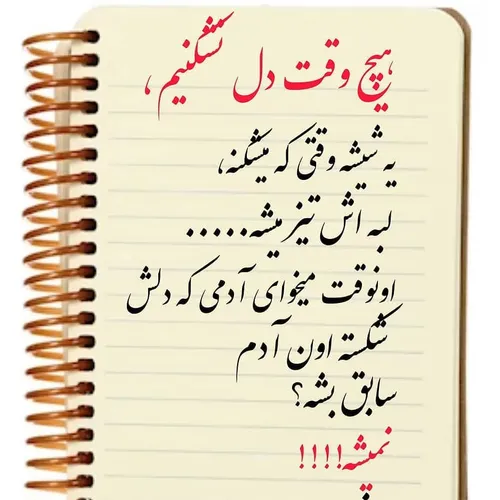 هیچ وقت دل نشکنیم ،
یه شیشه وقتی که میشکنه،
لبه اش تیز میشه.....
اونوقت میخوای آدمی که دلش
شکسته اون آدم
سابق بشه؟
نمیشه!!!!